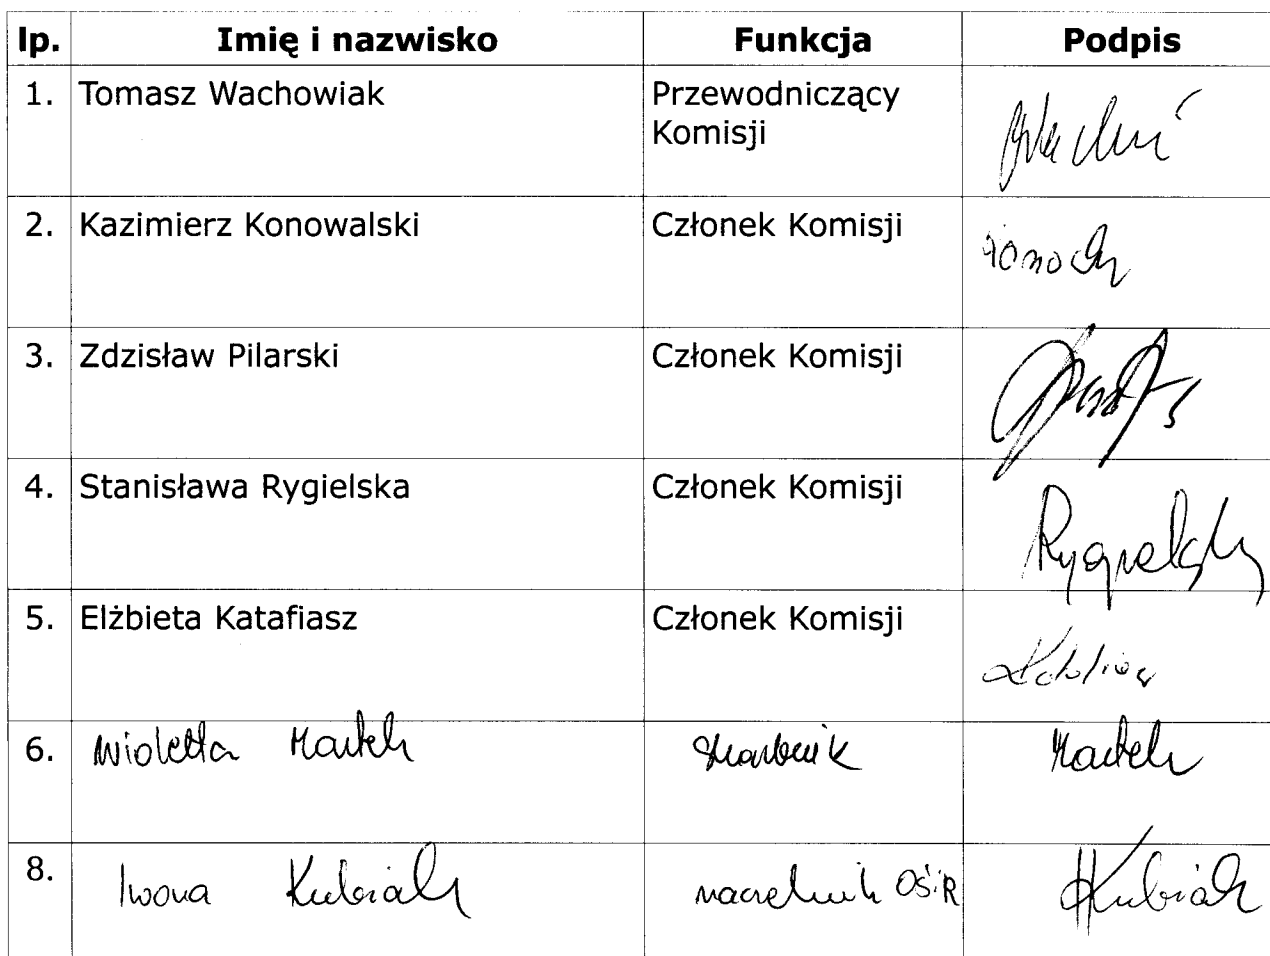 lp. Imię i nazwisko Funkcja Podpis
1. Tomasz Wachowiak Przewodniczący
Komisji
2. Kazimierz Konowalski Członek Komisji
3. Zdzisław Pilarski Członek Komisji
4. Stanisława Rygielska Członek Komisji
Rygielska
5. Elżbieta Katafiasz Członek Komisji
6. Wioletta skarbnik
8. Iwona Kubiak naczelnik OŚiR IKubiak